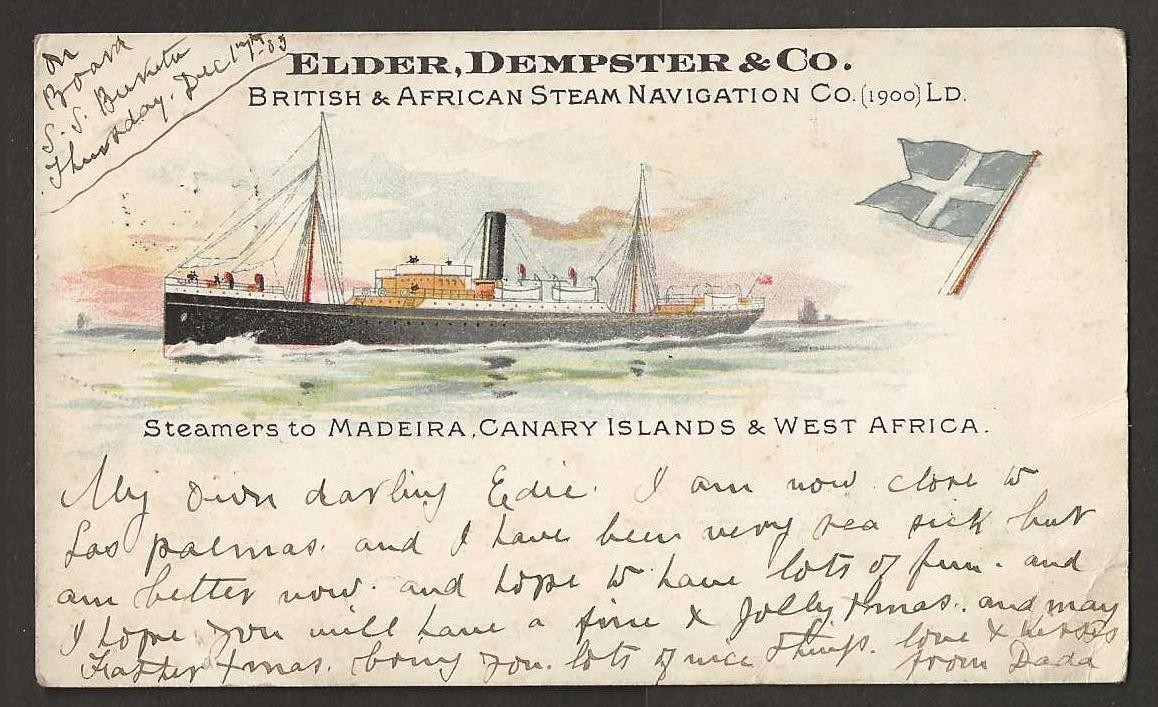 On
Board
S. S. Burutu
Thursday. Dec 17th 03
ELDER, DEMPSTER & CO.
BRITISH & AFRICAN STEAM NAVIGATION CO. (1900) LD.
Steamers to MADEIRA, CANARY ISLANDS & WEST AFRICA.
My own darling Edie. I am now close to
Las palmas. and I have been very sea sick but
am better now. and hope to have lots of fun. and
I hope you will have a fine & Jolly Xmas. and may
Father Xmas. bring you. lots of nice things. love & kisses
from Dada